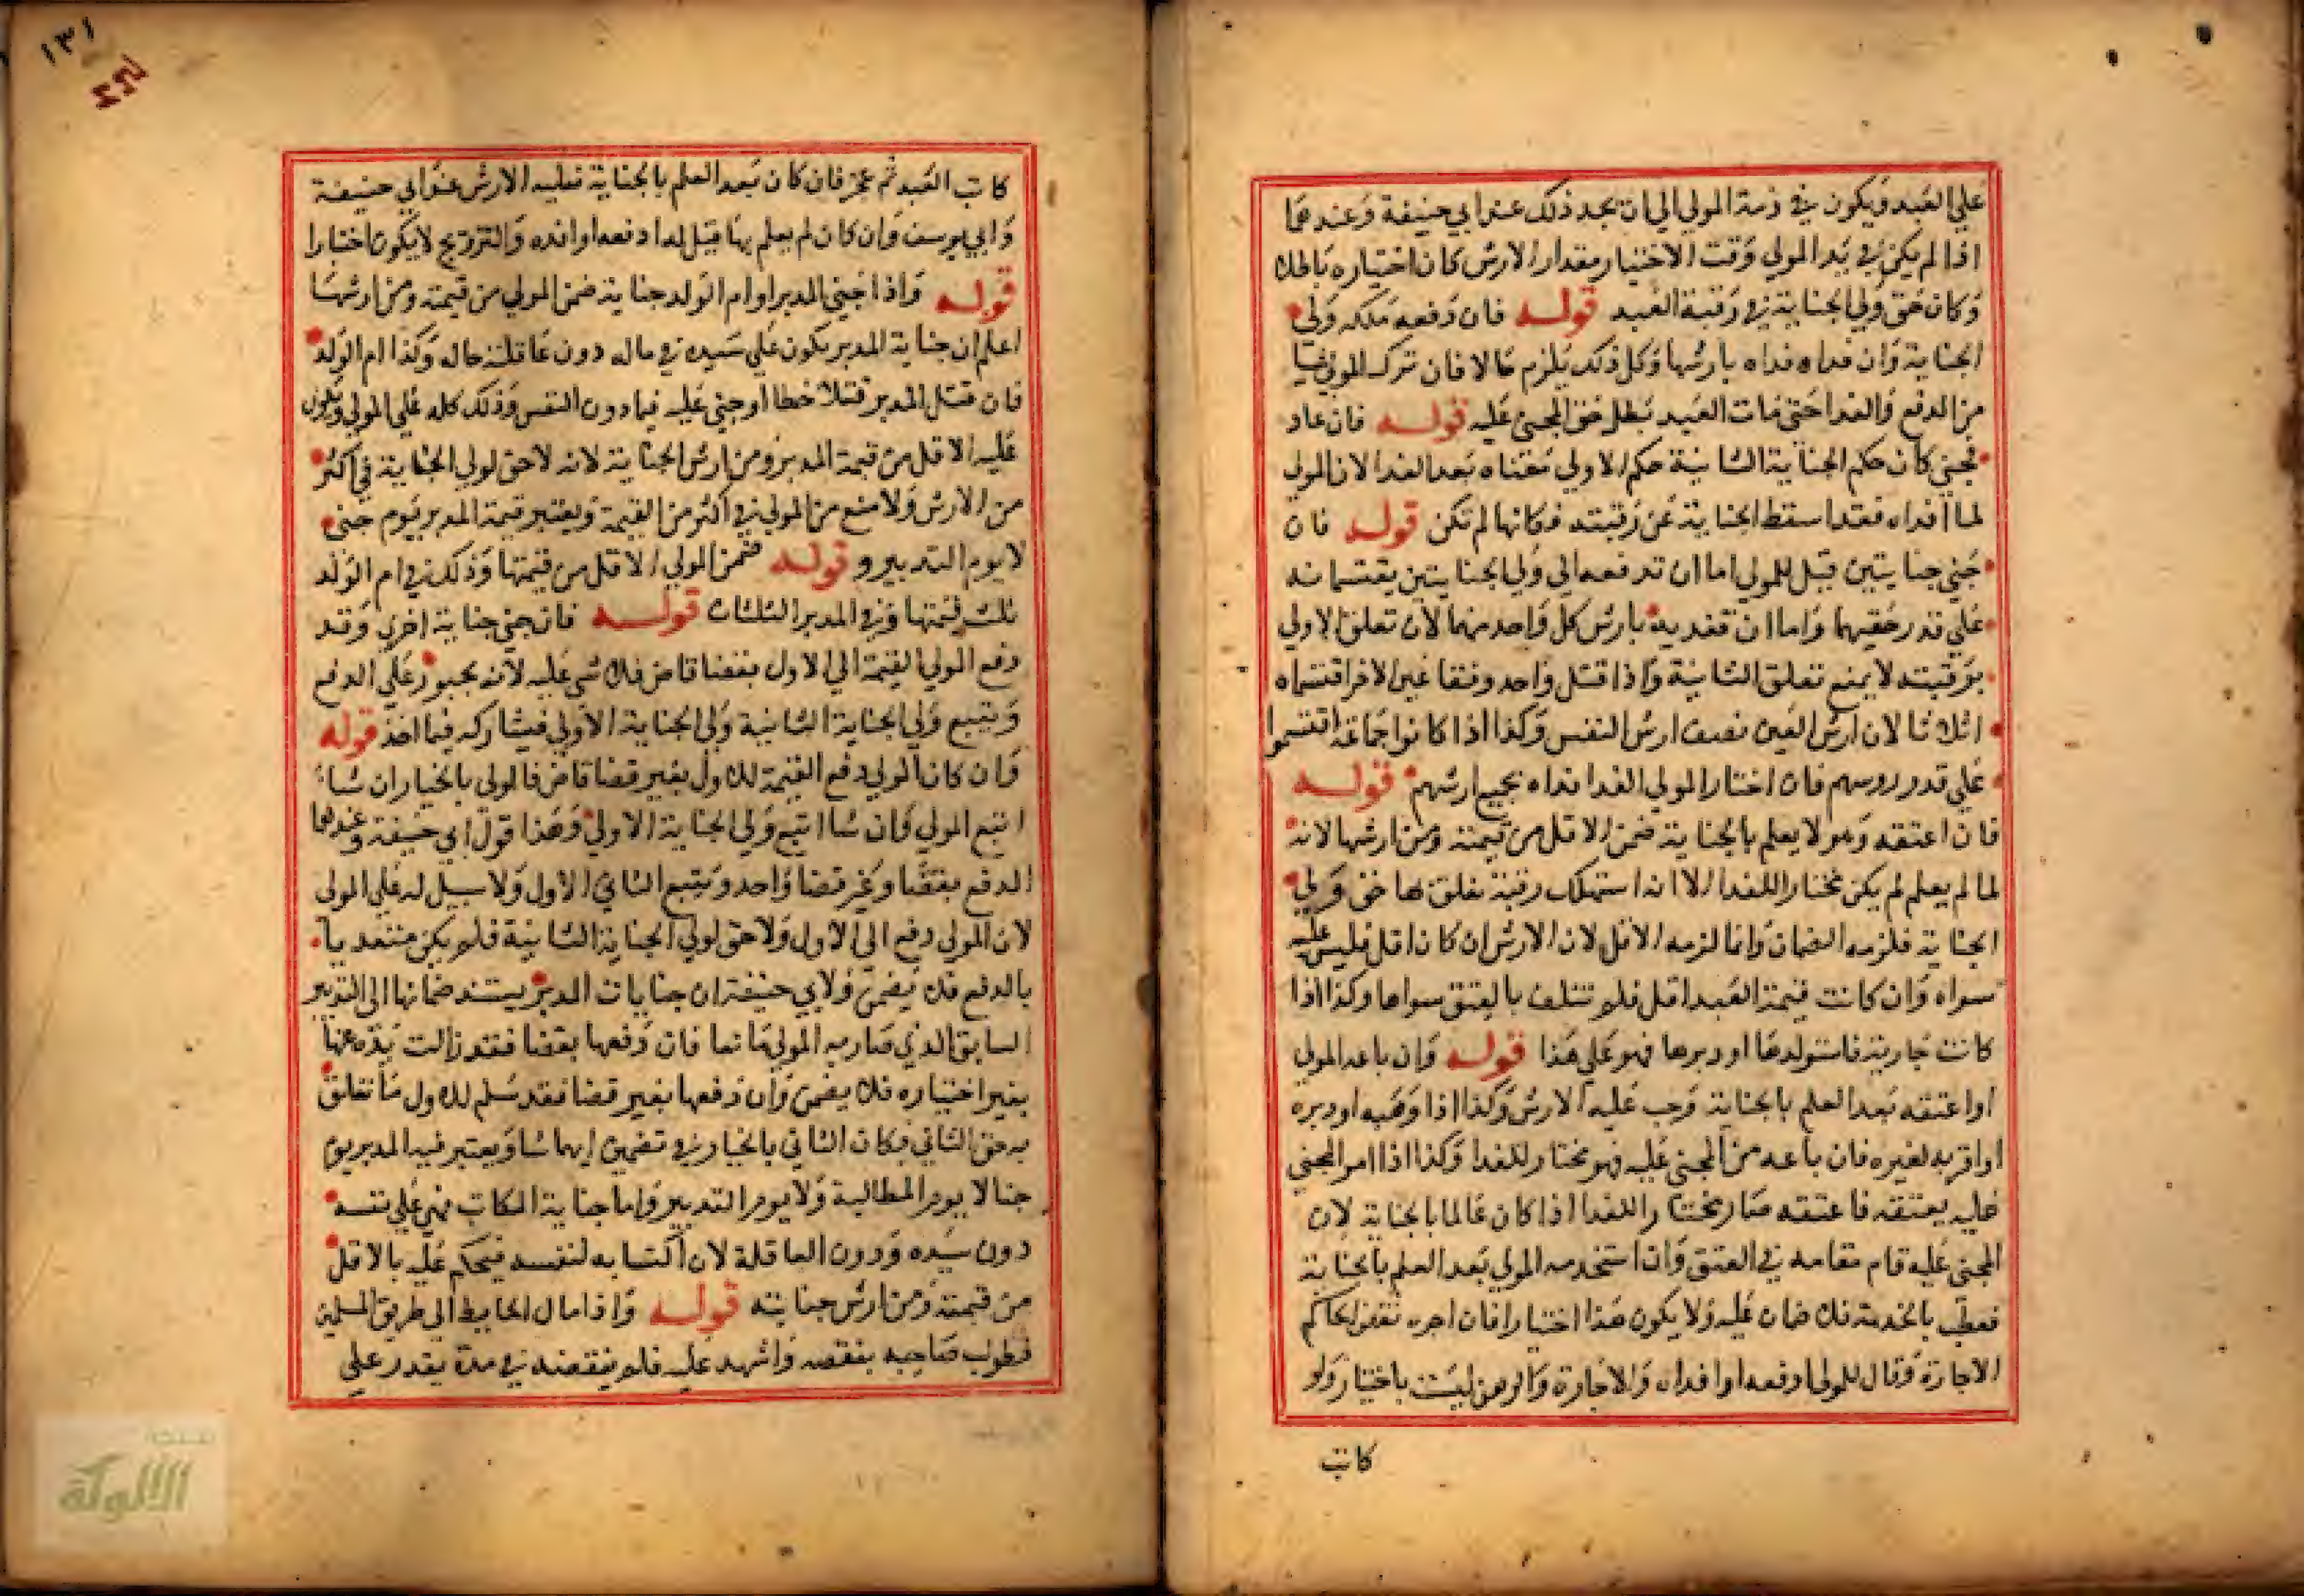 علي العبد ويكون في ذمة المولي الي ان يجد ذلك عند ابي حنيفة وعندهما
اذا لم يكن في يد المولي وقت الاختيار مقدار الارش كان اختياره باطلا
وكان حق ولي الجناية في رقبة العبد قوله فان دفعه ملكه ولي
الجناية وان فداه فداه بارشها وكل ذلك يلزم حالا فان ترك المولي شيا
من الدفع والفدا حتي مات العبد بطل حق المجني عليه قوله فان عاد
فجني كان حكم الجناية الثانية حكم الاولي معناه بعد الفدا لان المولي
لما افداه فقد اسقط الجناية عن رقبته فكانها لم تكن قوله فان
جني جنايتين قيل للمولي اما ان تدفعه الي ولي الجنايتين يقتسمانه
علي قدر حقيهما واما ان تفديه بارش كل واحد منهما لان تعلق الاولي
برقبته لا يمنع تعلق الثانية واذا قتل واحد وفقا عين الاخر اقتسماه
اثلاثا لان ارش العين نصف ارش النفس وكذا اذا كانوا جماعة اقتسموا
علي قدر روسهم فان اختار المولي الفدا فداه بجميع ارشهم قوله
فان اعتقه وهو لا يعلم بالجناية ضمن الاقل من قيمته ومن ارشها لانه
لما لم يعلم لم يكن مختارا للفدا الا انه استهلك رقبة تعلق بها حق ولي
الجناية فلزمه الضمان وانما لزمه الاقل لان الارش ان كان اقل فليس عليه
سواه وان كانت قيمة العبد اقل فلم تتلف بالعتق سواها وكذا اذا
كانت جارية فاستولدها او دبرها فهو علي هذا قوله وان باعه المولي
او اعتقه بعد العلم بالجناية وجب عليه الارش وكذا اذا وهبه او دبره
او اقر به لغيره فان باعه من المجني عليه فهو مختار للفدا وكذا اذا امر المجني
عليه بعتقه فاعتقه صار مختارا للفدا اذا كان عالما بالجناية لان
المجني عليه قام مقامه في العتق وان استخدمه المولي بعد العلم بالجناية
فعطب بالخدمة فلا ضمان عليه ولا يكون هذا اختيارا فان اجره نقض الحاكم
الاجارة وقال للمولي ادفعه او افداه والاجارة والرهن ليست باختيار ولو
كاتب
١٣١
كاتب العبد ثم عجز فان كان بعد العلم بالجناية فعليه الارش عند ابي حنيفة
وابي يوسف وان كان لم يعلم بها قيل له ادفعه او افده والتزويج لا يكون اختيارا
قوله واذا جني المدبر او ام الولد جناية ضمن المولي من قيمته ومن ارشها
اعلم ان جناية المدبر يكون علي سيده في ماله دون عاقلته حاله وكذا ام الولد
فان قتل المدبر قتلا خطا او جني عليه فيما دون النفس وذلك كله علي المولي ويكون
عليه الاقل من قيمة المدبر ومن ارش الجناية لانه لا حق لولي الجناية في اكثر
من الارش ولا منع من المولي في اكثر من القيمة ويعتبر قيمة المدبر يوم جني
لا يوم التدبير و قوله ضمن المولي الاقل من قيمتها وذلك في ام الولد
ثلث قيمتها وفي المدبر الثلثان قوله فان جني جناية اخري وقد
دفع المولي القيمة الي الاول بقضا قاض فلا شي عليه لانه مجبور علي الدفع
ويتبع ولي الجناية الثانية ولي الجناية الاولي فيشاركه فيما اخذ قوله
وان كان المولي دفع القيمة للاول بغير قضا قاض فالمولي بالخيار ان شاء
اتبع المولي وان شا اتبع ولي الجناية الاولي وهذا قول ابي حنيفة وعندهما
الدفع بقضا وغير قضا واحد ويتبع الثاني الاول ولا سبيل له علي المولي
لان المولي دفع الي الاول ولا حق لولي الجناية الثانية فلم يكن متعديا
بالدفع فلا يضمن ولابي حنيفة ان جنايات المدبر يستند ضمانها الي التدبير
السابق الذي صار به المولي مانعا فان دفعها بقضا فقد زالت يده عنها
بغير اختياره فلا يضمن وان دفعها بغير قضا فقد سلم للاول ما تعلق
به حق الثاني فكان الثاني بالخيار في تضمين ايهما شا ويعتبر فيه المدبر يوم
جنا لا يوم المطالبة ولا يوم التدبير واما جناية المكاتب فهي علي نفسه
دون سيده ودون العاقلة لان اكتسابه لنفسه فيحكم عليه بالاقل
من قيمته ومن ارش جنايته قوله واذا مال الحايط الي طريق المسلمين
فطولب صاحبه بنقضه واشهد عليه فلم ينقضه في مدة يقدر علي
الألوكة